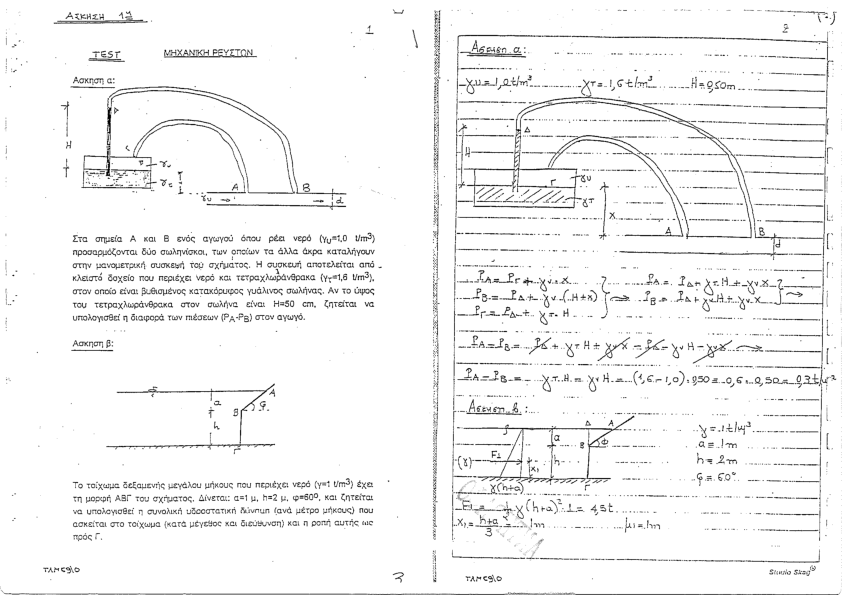 ΑΣΚΗΣΗ 1η
1
TEST ΜΗΧΑΝΙΚΗ ΡΕΥΣΤΩΝ
Ασκηση α:
H
A B
γυ
d
Στα σημεία Α και Β ενός αγωγού όπου ρέει νερό (γυ=1,0 t/m³)
προσαρμόζονται δύο σωληνίσκοι, των οποίων τα άλλα άκρα καταλήγουν
στην μανομετρική συσκευή του σχήματος. Η συσκευή αποτελείται από
κλειστό δοχείο που περιέχει νερό και τετραχλωράνθρακα (γτ=1,6 t/m³),
στον οποίο είναι βυθισμένος κατακόρυφος γυάλινος σωλήνας. Αν το ύψος
του τετραχλωράνθρακα στον σωλήνα είναι Η=50 cm, ζητείται να
υπολογισθεί η διαφορά των πιέσεων (PA-PB) στον αγωγό.
Ασκηση β:
A
a
B φ
h
Γ
Το τοίχωμα δεξαμενής μεγάλου μήκους που περιέχει νερό (γ=1 t/m³) έχει
τη μορφή ΑΒΓ του σχήματος. Δίνεται: α=1 μ, h=2 μ, φ=60⁰, και ζητείται
να υπολογισθεί η συνολική υδροστατική δύναμη (ανά μέτρο μήκους) που
ασκείται στο τοίχωμα (κατά μέγεθος και διεύθυνση) και η ροπή αυτής ως
πρός Γ.
ΤΛΜ C9\0
3
2
(2.)
Ασκηση α:
γυ = 1,0 t/m³ γτ = 1,6 t/m³ H = 0,50 m
Δ
H
Γ
γυ
γτ
X
A B
d
PA = PΓ + γυ · X PA = PΔ + γτ H + γυ X
PB = PΔ + γυ (H+X) PB = PΔ + γυ H + γυ X
PΓ = PΔ + γτ · H
PA - PB = PΔ + γτ H + γυ X - PΔ - γυ H - γυ X
PA - PB = γτ · H - γυ H = (1,6 - 1,0) · 0,50 = 0,6 · 0,50 = 0,3 t/μ⁻²
Ασκηση β:
Δ A
a
B φ
F1
(γ) X1 h
γ(h+a) Γ
γ = 1 t/μ³
a = 1 m
h = 2 m
φ = 60°
F1 = ½ γ (h+a)² · 1 = 4,5 t
X1 = (h+a)/3 = 1m μ1 = 1m
ΤΛΜ C9\0
Studio Skag